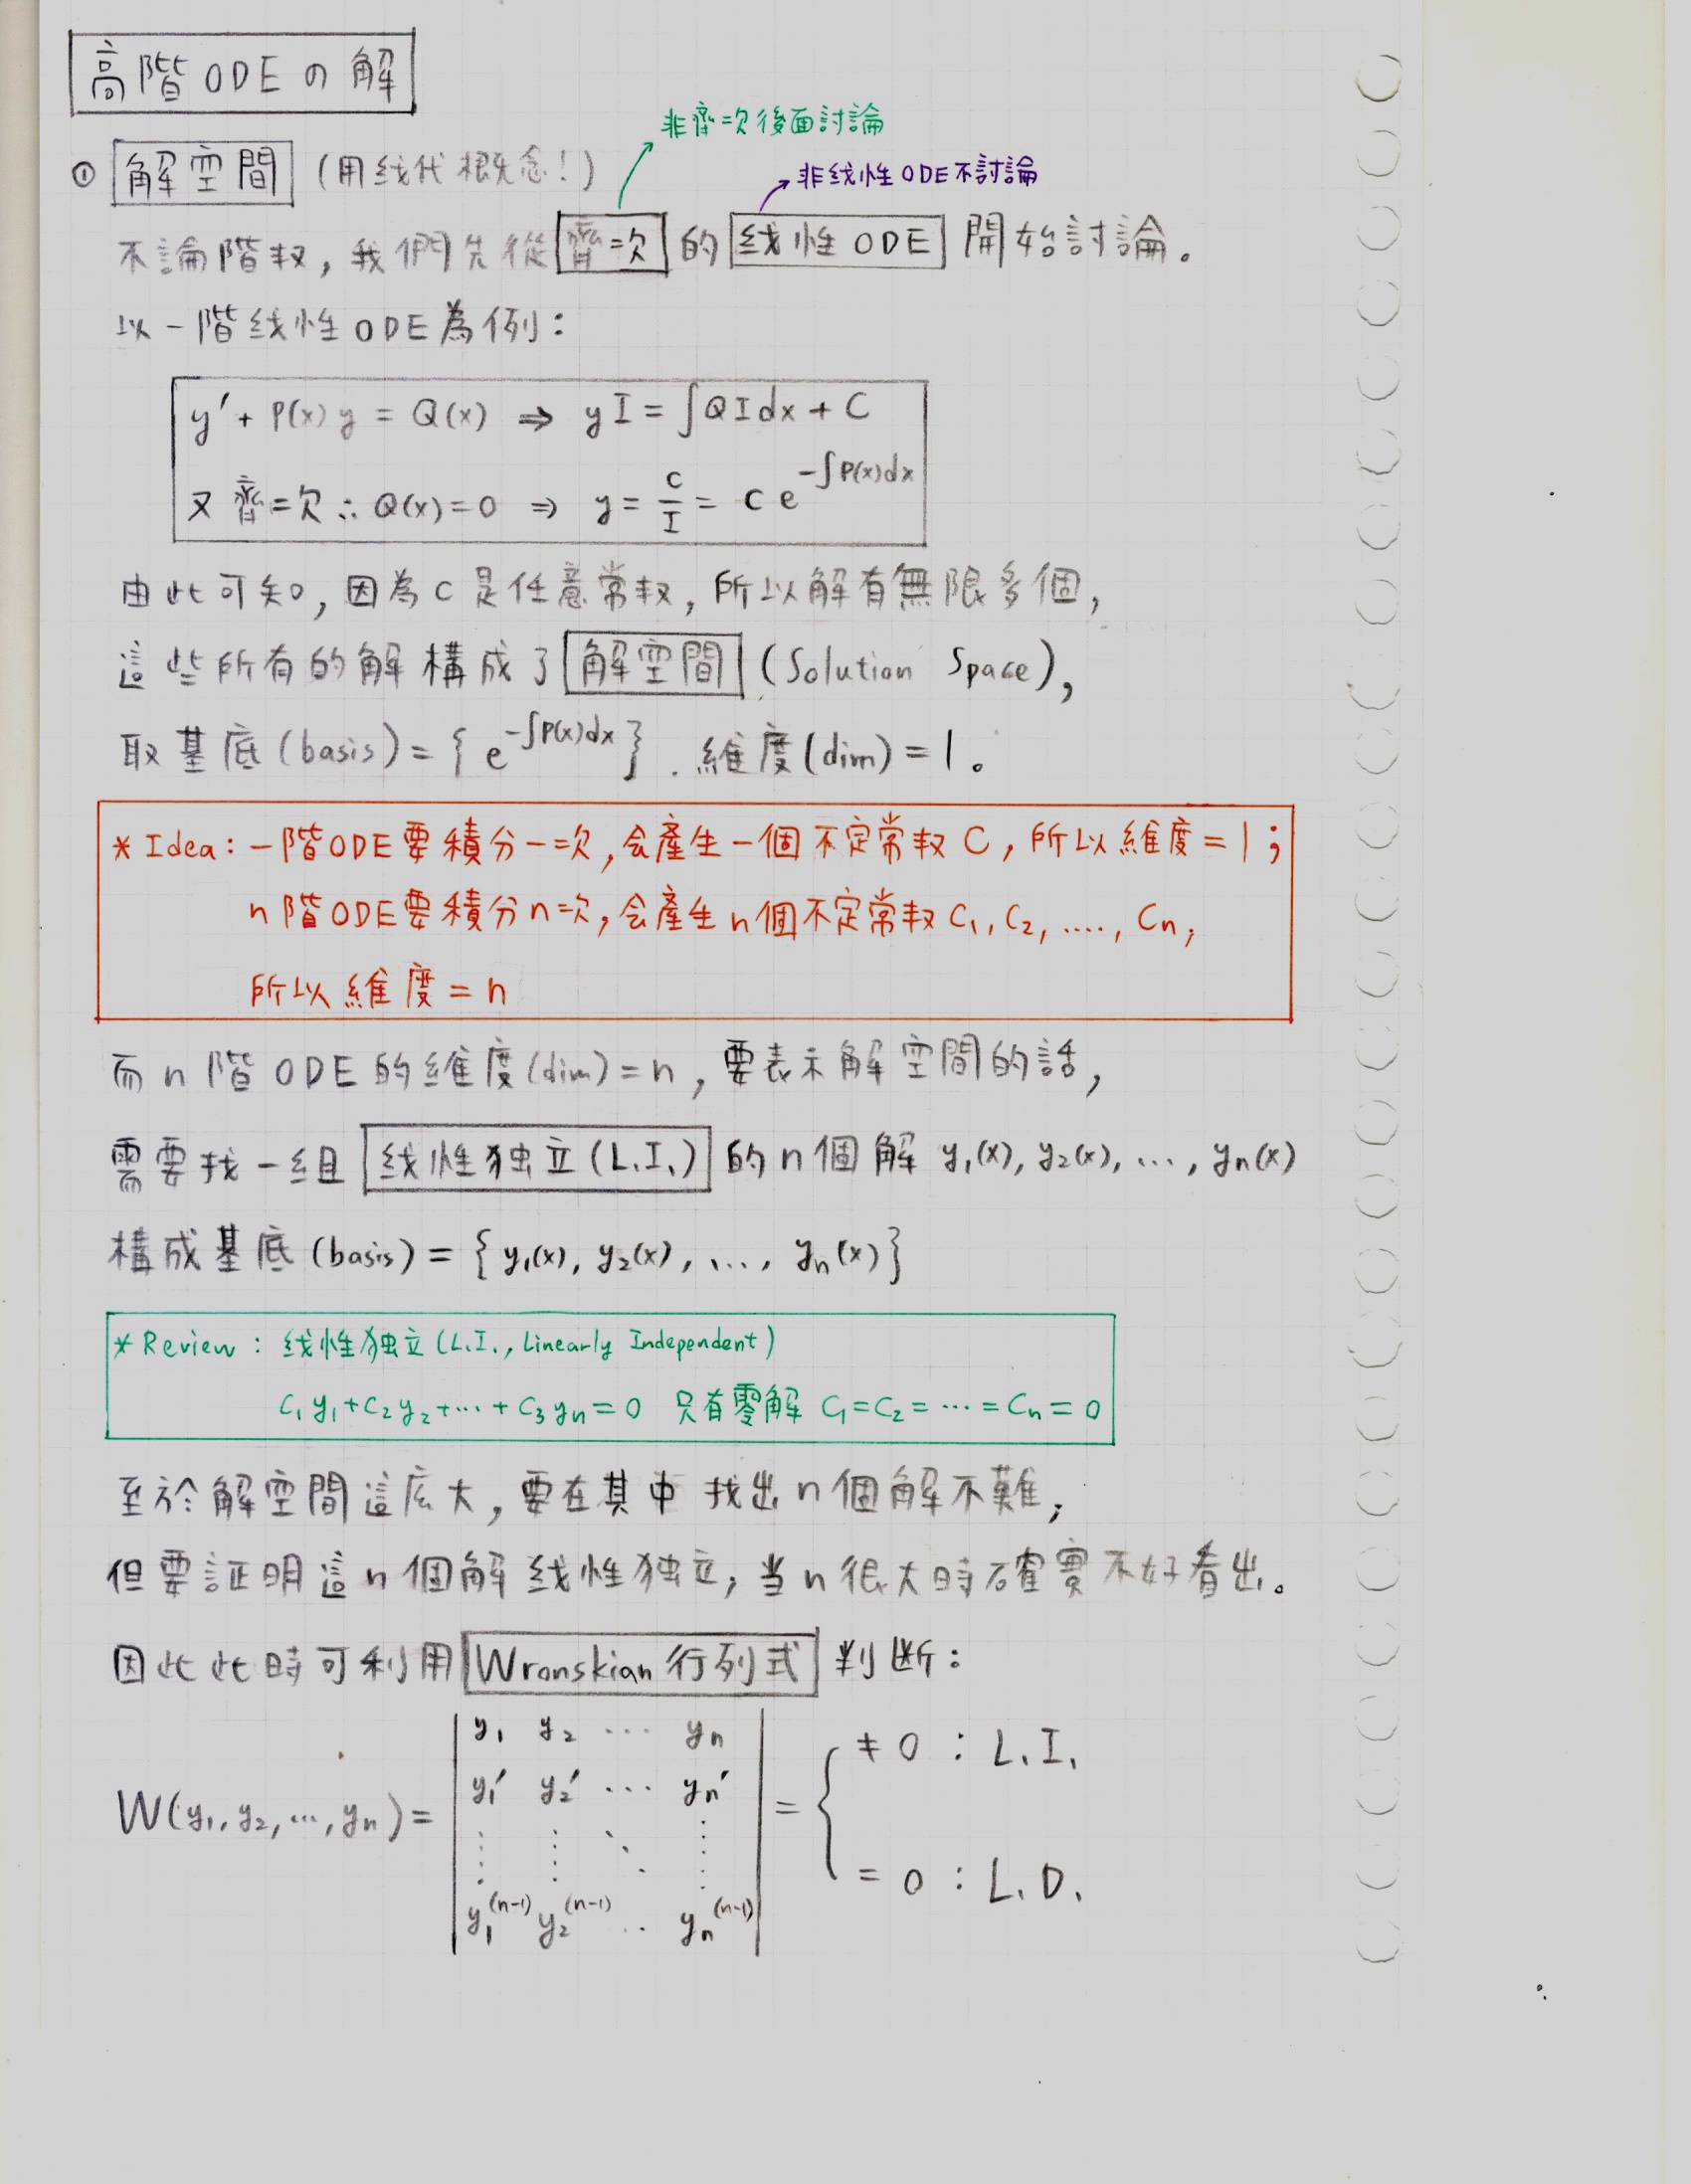 高階ODEの解
非齊次後面討論
① 解空間 (用线代概念!)
非线性ODE不討論
不論階数, 我們先從齊次的线性ODE開始討論。
以一階线性ODE為例:
y' + P(x)y = Q(x) ⇒ yI = ∫QIdx + C
又齊次 ∴ Q(x)=0 ⇒ y = C/I = C e^{-∫P(x)dx}
由此可知, 因為C是任意常数, 所以解有無限多個,
這些所有的解構成了解空間 (Solution Space),
取基底(basis) = { e^{-∫P(x)dx} }. 維度(dim) = 1。
* Idea: 一階ODE要積分一次, 会產生一個不定常数C, 所以維度=1;
n階ODE要積分n次, 会產生n個不定常数 C₁, C₂, ...., Cn,
所以維度=n
而n階ODE的維度(dim)=n, 要表示解空間的話,
需要找一組线性独立(L.I.)的n個解 y₁(x), y₂(x), ..., yn(x)
構成基底(basis) = { y₁(x), y₂(x), ..., yn(x) }
* Review: 线性独立 (L.I., Linearly Independent)
C₁y₁+C₂y₂+...+C₃yn=0 只有零解 C₁=C₂=...=Cn=0
至於解空間這広大, 要在其中找出n個解不難,
但要証明這n個解线性独立, 当n很大時確實不好看出。
因此此時可利用 Wronskian 行列式 判断:
W(y₁, y₂, ..., yn) = | y₁ y₂ ... yn | = { ≠ 0 : L.I.
y₁' y₂' ... yn'
⋮ ⋮ ⋱ ⋮
y₁^(n-1) y₂^(n-1) .. yn^(n-1)
= 0 : L.D.